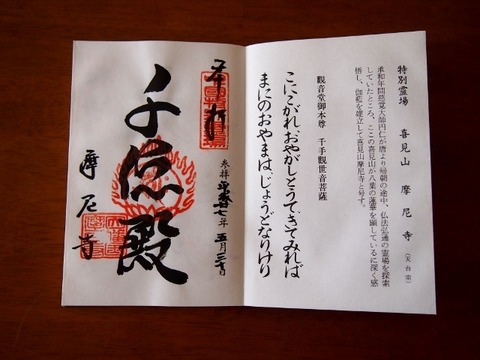 特別霊場　喜見山　摩尼寺（天台宗）
承和年間慈覚大師円仁が唐より帰朝の途中、仏法弘通の霊場を探索
していたところ、ここの喜見山が八葉の蓮華を顕しているに深く感
悟し、伽藍を建立して喜見山摩尼寺と号す。
観音堂御本尊　千手観世音菩薩
こにこがれおやがしとうてきてみれば
まにのおやまは、じょうどなりけり
奉拝
参拝 平成 十七年 五月三十日
殿
摩尼寺